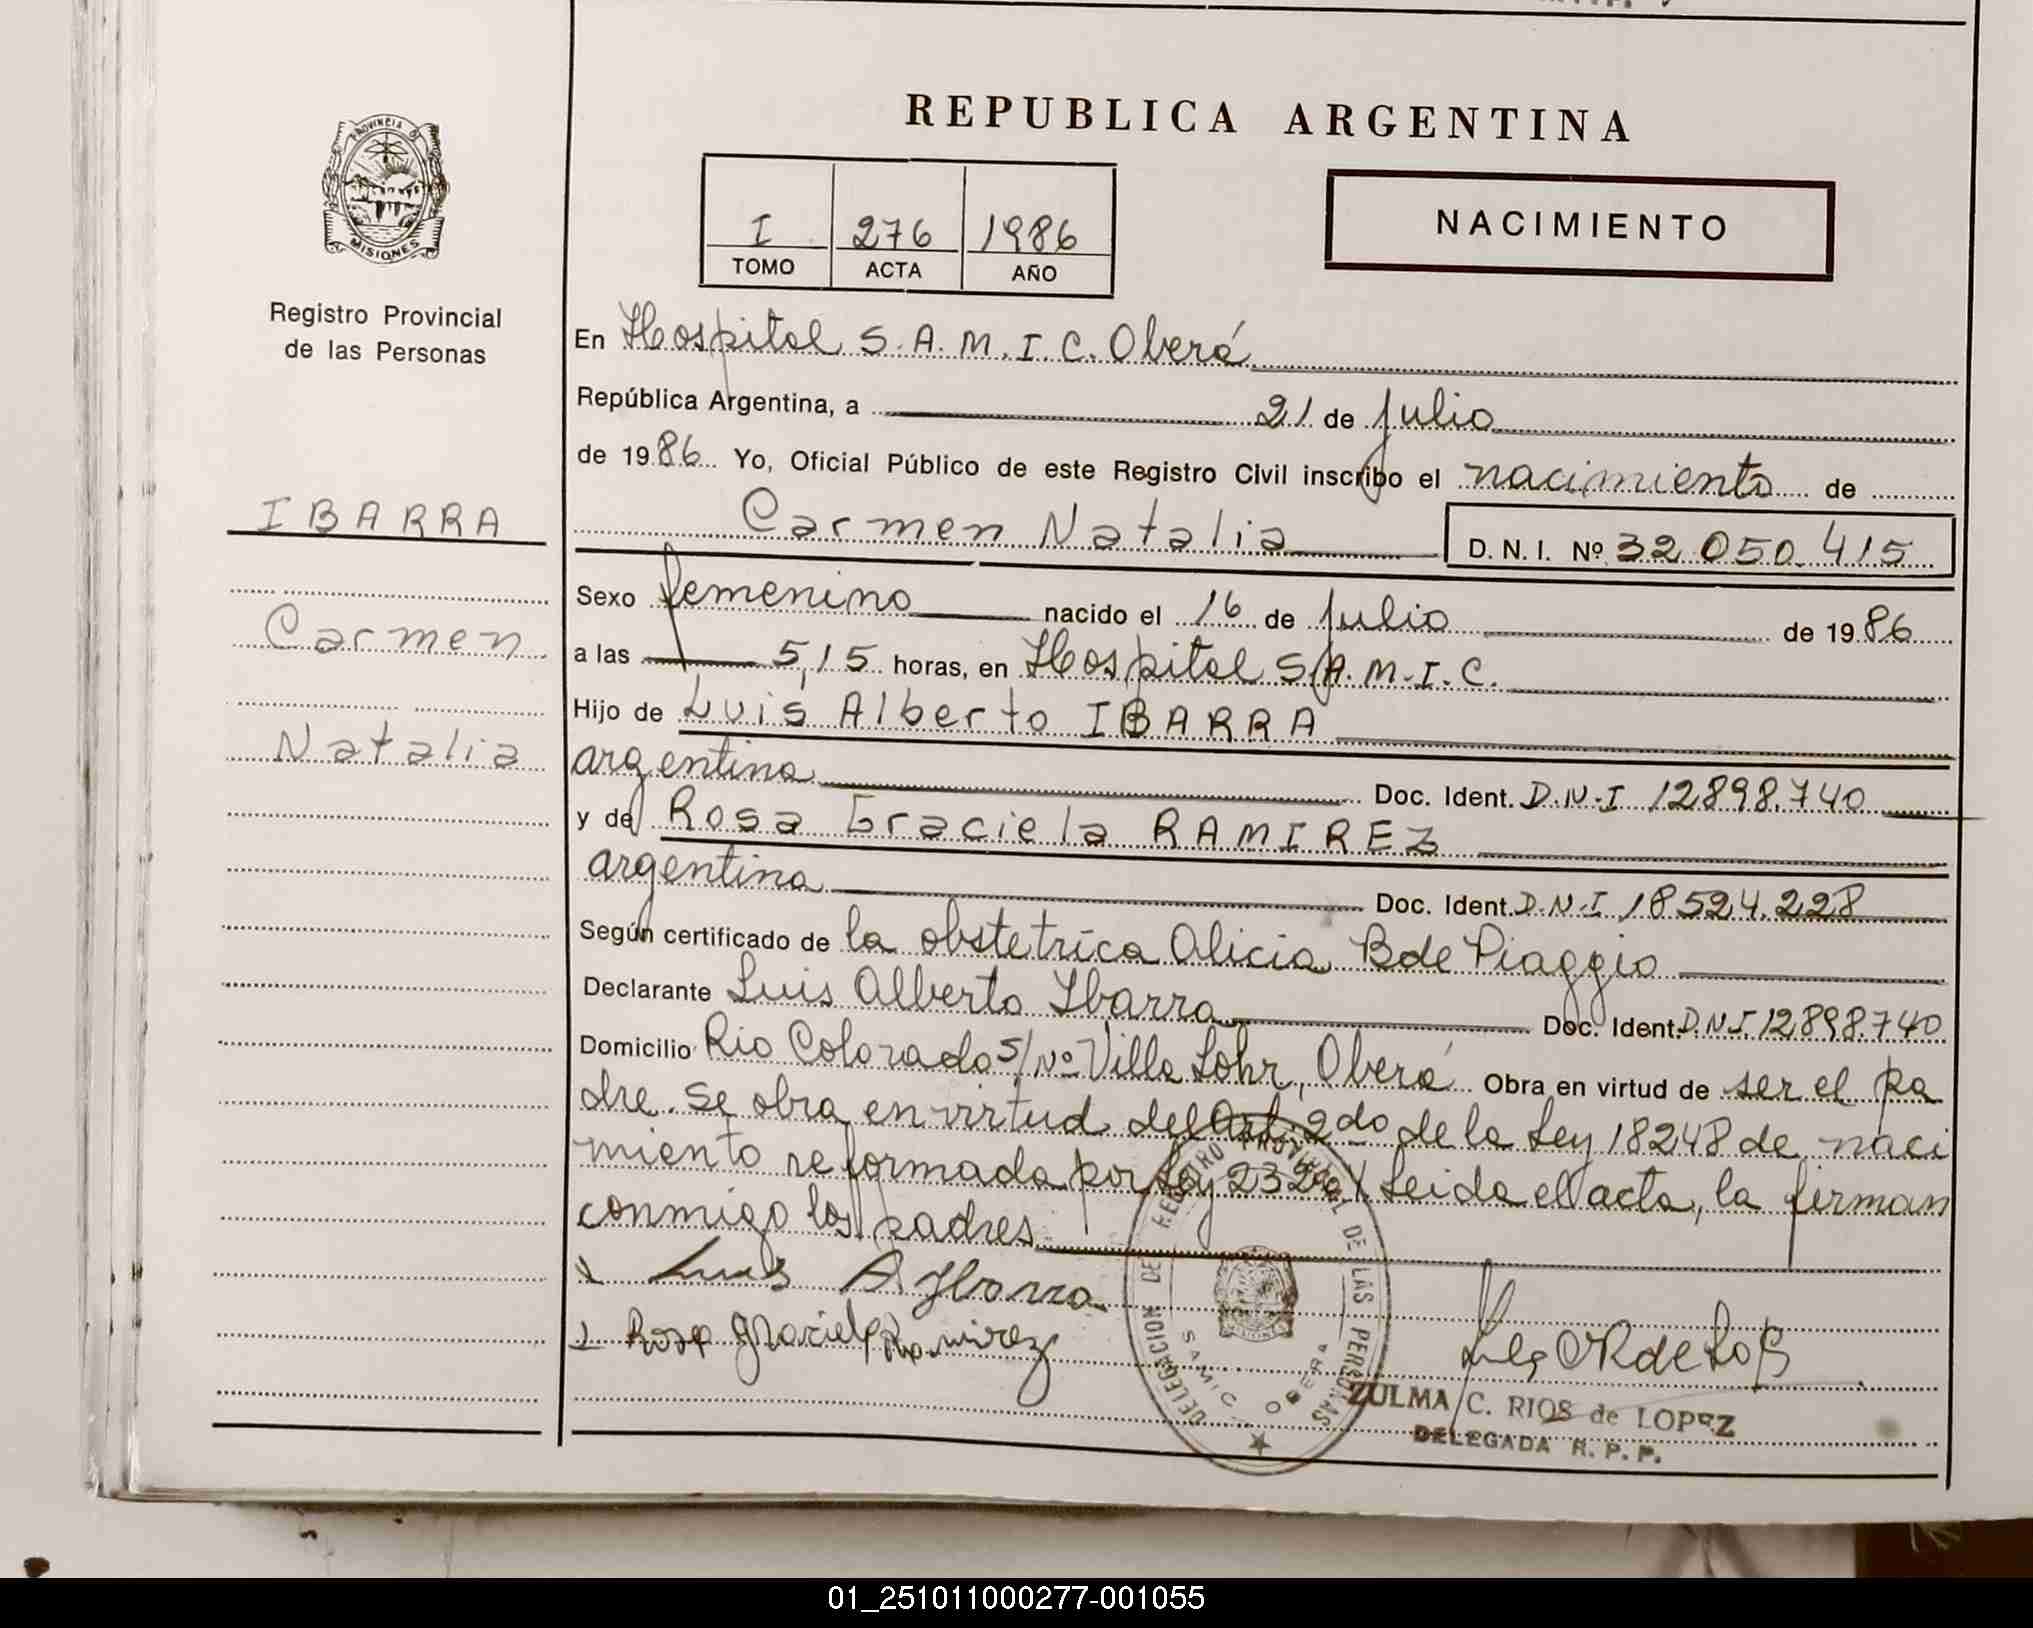 REPUBLICA ARGENTINA
PROVINCIA D
MISIONES
Registro Provincial
de las Personas
I 276 1986
TOMO ACTA AÑO
NACIMIENTO
En Hospital S.A.M.I.C. Oberá
República Argentina, a 21 de julio
de 1986 Yo, Oficial Público de este Registro Civil inscribo el nacimiento de
IBARRA
Carmen Natalia D.N.I. Nº 32.050.415
Sexo femenino nacido el 16 de julio de 1986
Carmen
a las 5,15 horas, en Hospital S.A.M.I.C.
Hijo de Luis Alberto IBARRA
Natalia
argentina Doc. Ident. D.N.I 12898.740
y de Rosa Graciela RAMIREZ
argentina Doc. Ident. D.N.I 18524.228
Según certificado de la obstetríca Alicia B de Piaggio
Declarante Luis Alberto Ibarra Doc. Ident. D.N.I. 12.898.740
Domicilio Rio Colorado s/Nº Villa Lohr, Oberá Obra en virtud de ser el pa
dre. Se obra en virtud del Art. 2do de la Ley 18248 de naci
miento reformada por Ley 23264 Leida el acta, la firman
conmigo los padres
Luis A Ibarra
Rosa Graciela Ramirez
DELEGACION DE REGISTRO PROVINCIAL DE LAS PERSONAS
SAMIC OBERA
ZULMA C. RIOS de LOPEZ
DELEGADA R. P. P.
01_251011000277-001055